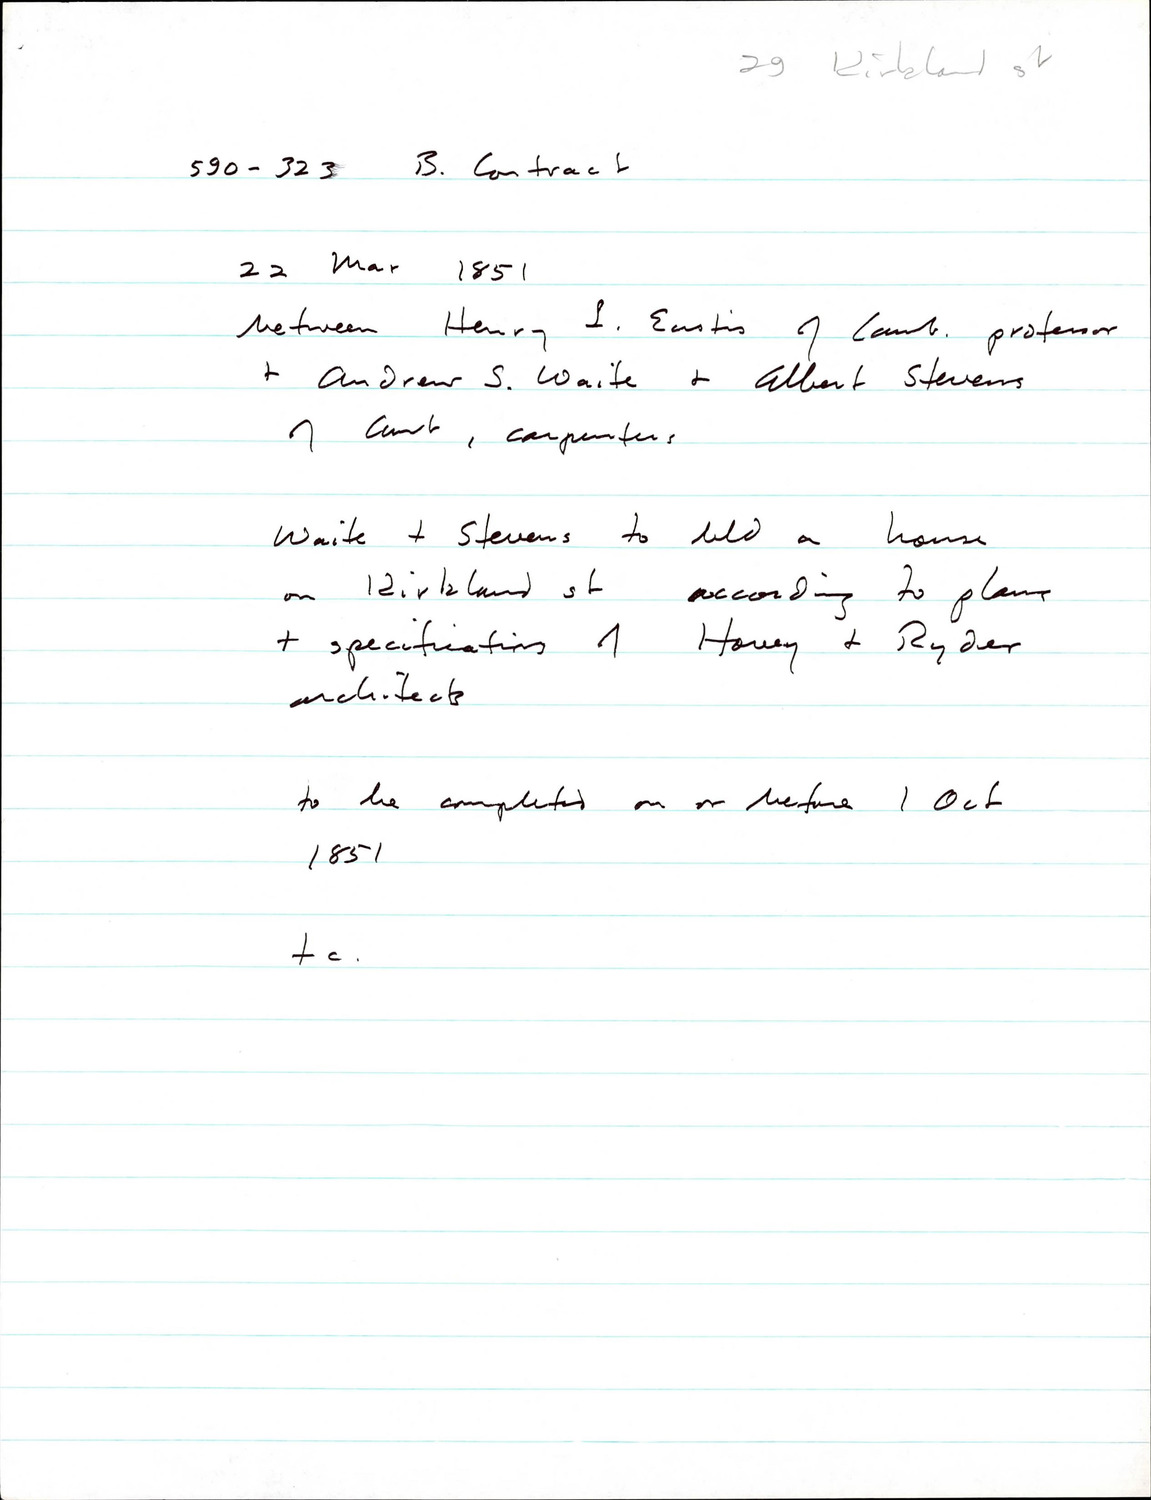 29 Kirkland st
590-323 B. Contract
22 Mar 1851
between Henry L. Eustis of Camb. professor
+ Andrew S. Waite + Albert Stevens
of Camb, carpenters
Waite + Stevens to bld a house
on Kirkland st according to plans
+ specifications of Hovey + Ryder
architects
to be completed on or before 1 Oct
1851
+c.